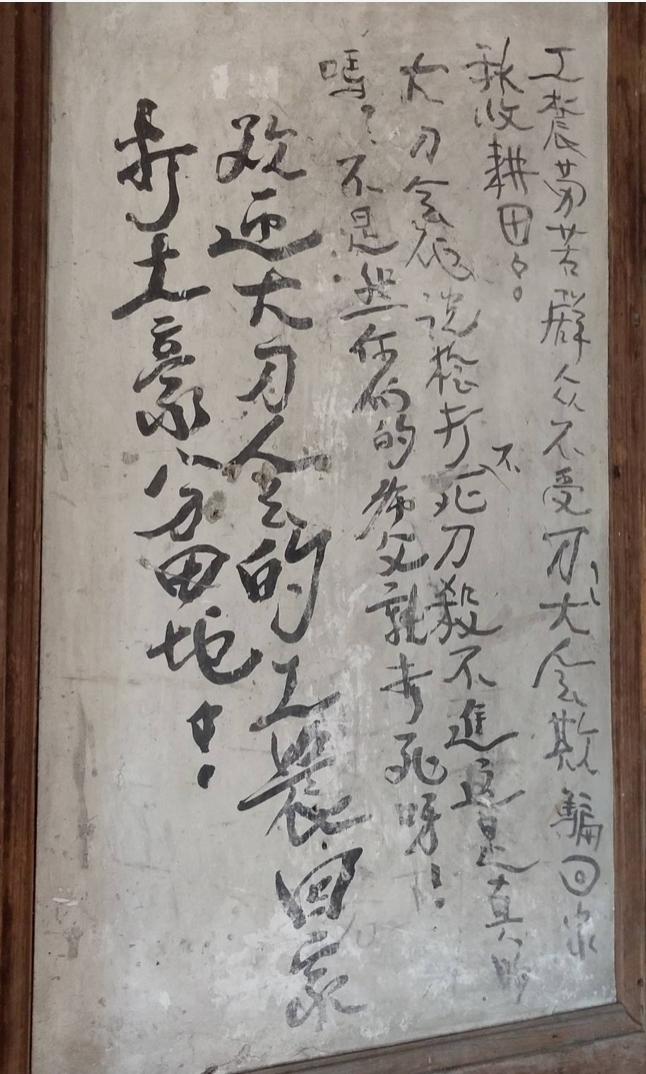 工農劳苦群众不受刀大会欺騙回家
秋收耕田。
大刀会他说枪打不死刀殺不進这是真的
嗎？不是你们的父親打死呀！
欢迎大刀会的工農回家
打土豪分田地！